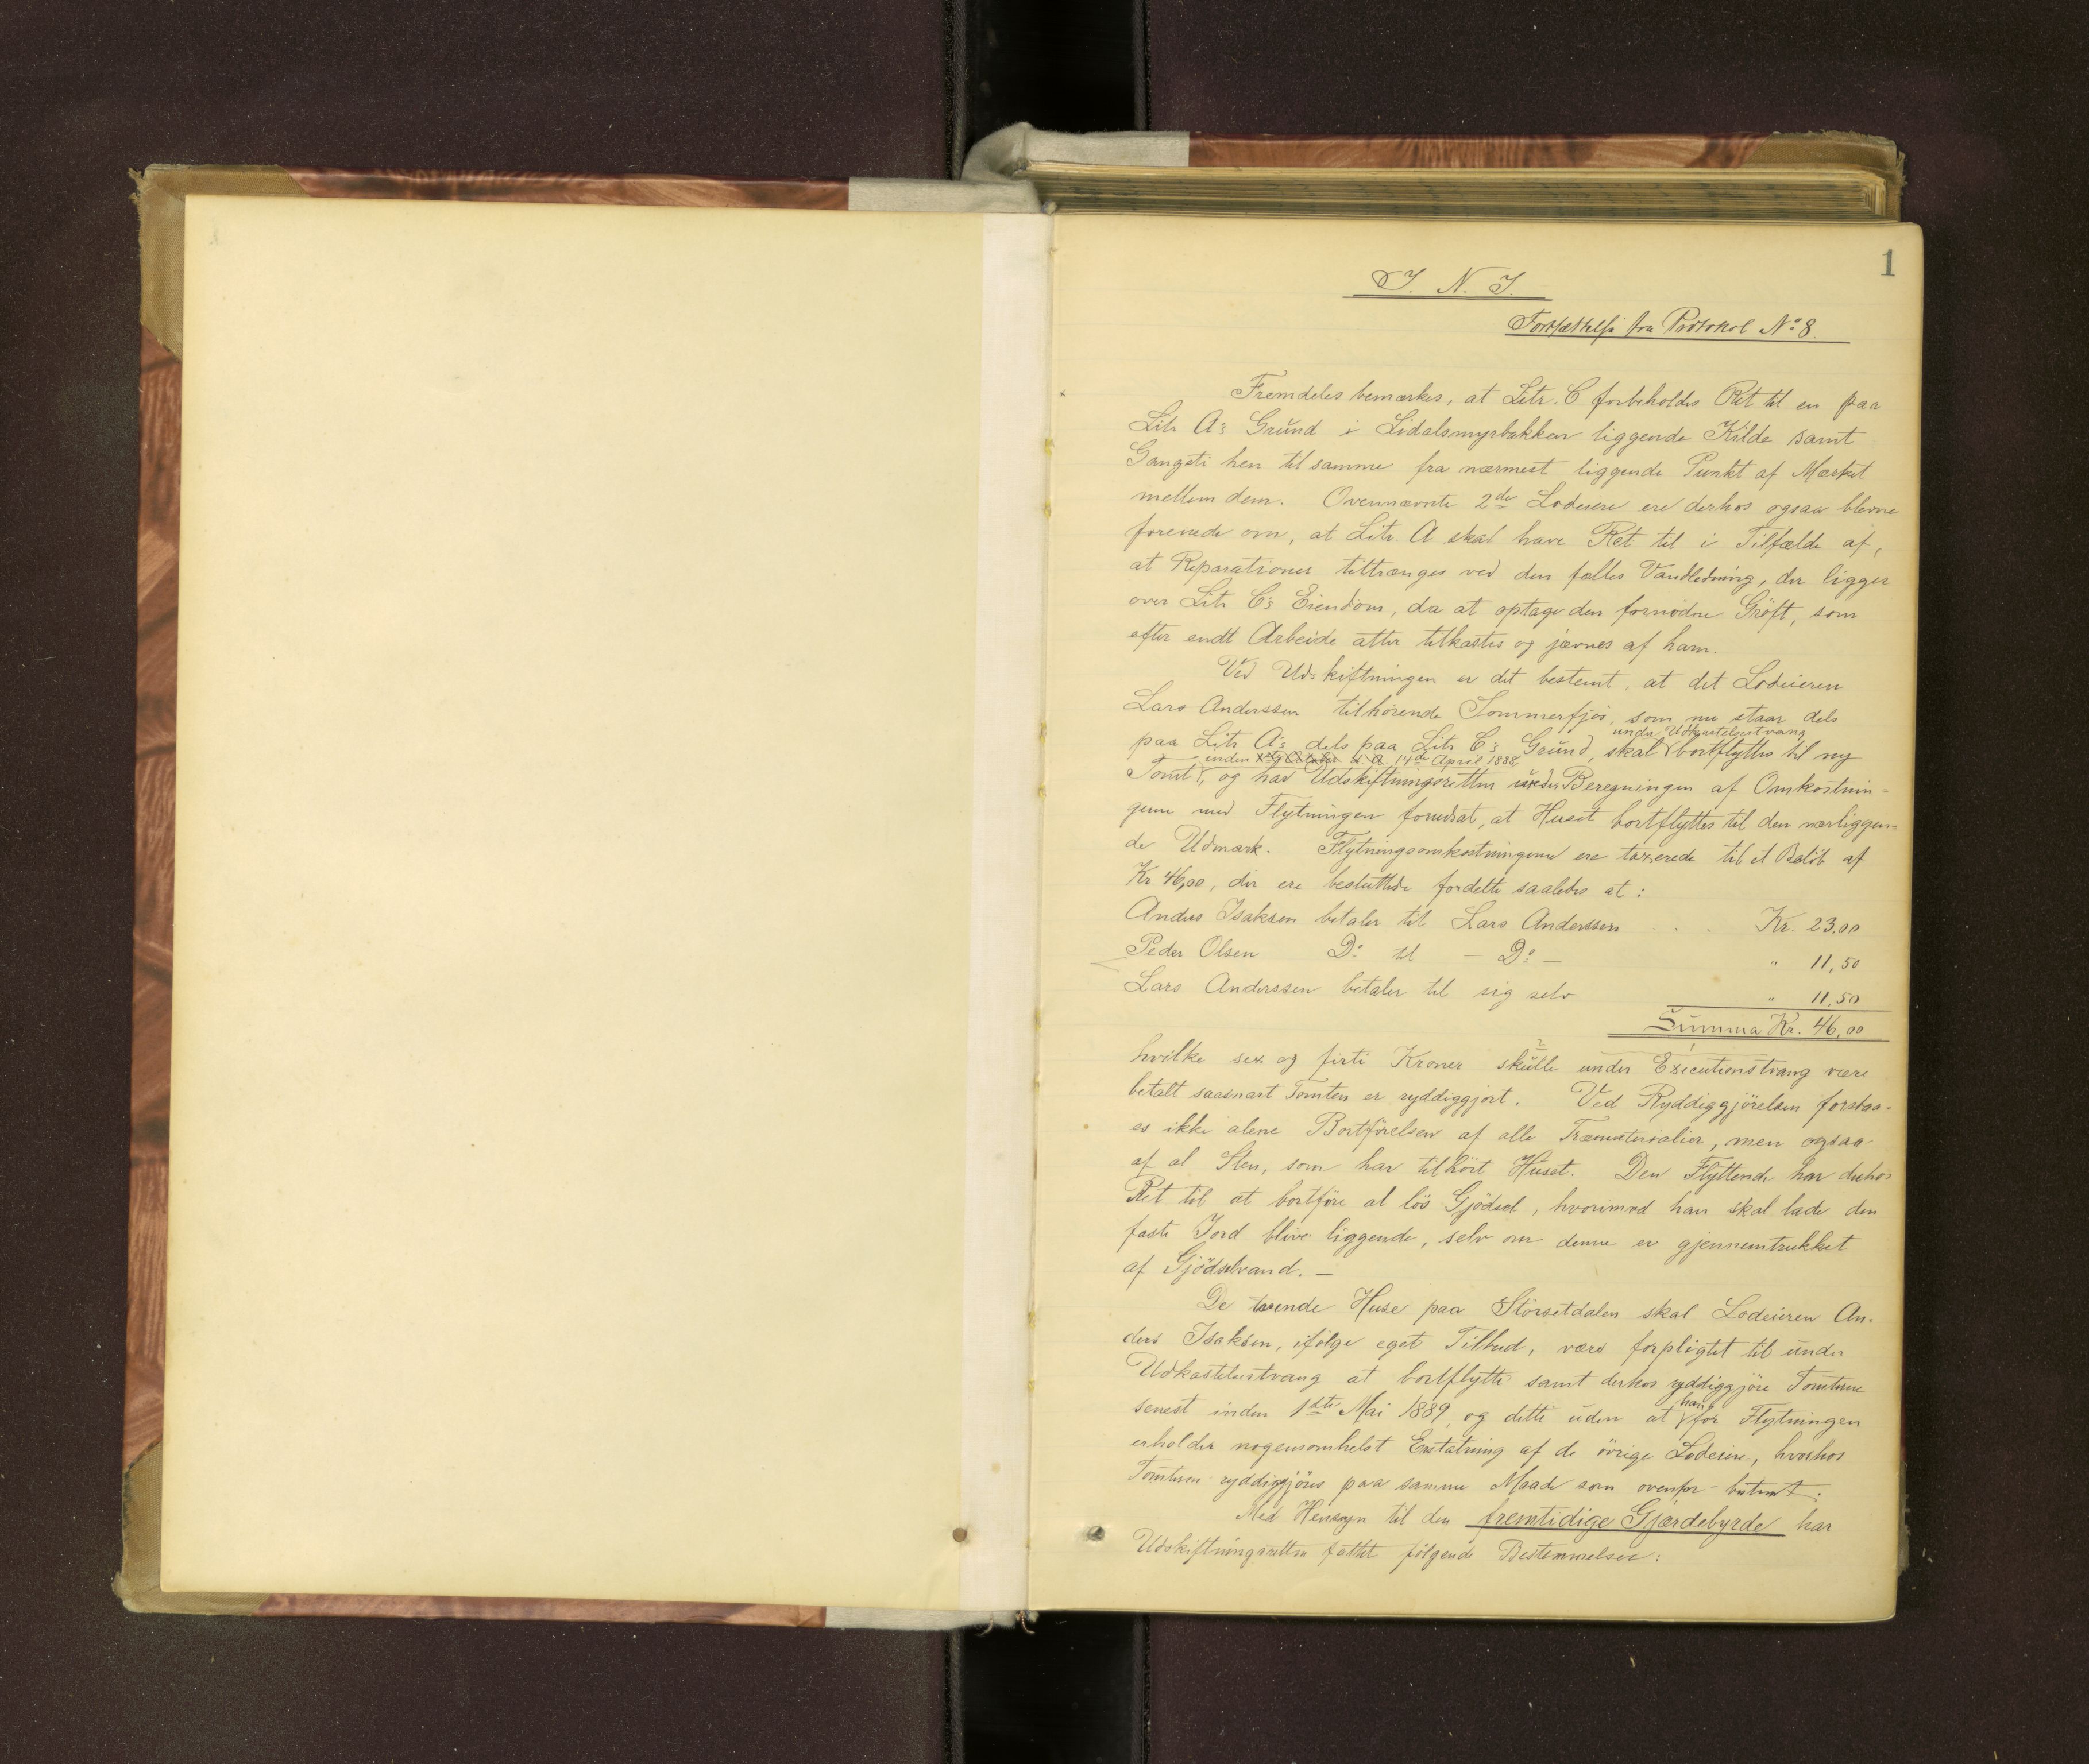 1
I. N. I.
Fortsættelse fra Protokol No 8.
Fremdeles bemærkes, at Litr. C forbeholdes Ret til en paa
Litr A's Grund i Lidalsmyrbakken liggende Kilde samt
Gangsti hen til samme fra nærmest liggende Punkt af Mærket
mellem dem. Ovennævnte 2de Lodeiere ere derhos ogsaa blevne
forenede om, at Litr. A skal have Ret til i Tilfælde af,
at Reparationer tiltrænges ved den fælles Vandledning, der ligger
over Litr C's Eiendom, da at optage den fornødne Grøft, som
efter endt Arbeide atter tilkastes og jævnes af ham.
Ved Udskiftningen er det bestemt, at det Lodeieren
Lars Anderssen tilhørende Sommerfjøs, som nu staar dels
under Udkastelsestvang
paa Litr A's dels paa Litr C's Grund, skal bortflyttes til ny
inden 14de April 1888
Tomt, og har Udskiftningsretten under Beregningen af Omkostnin=
gerne med Flytningen forudsat, at Huset bortflyttes til den nærliggen=
de Udmark. Flytningsomkostningerne ere taxerede til et Beløb af
Kr 46,00, der ere besluttede fordelte saaledes at:
Anders Isaksen betaler til Lars Anderssen . . . Kr. 23,00
Peder Olsen Do til – Do – " 11,50
Lars Anderssen betaler til sig selv " 11,50
Summa Kr. 46,00
hvilke sex og firti Kroner skulle under Executionstvang være
betalt saasnart Tomten er ryddiggjort. Ved Ryddiggjørelsen forstaa-
es ikke alene Bortførelsen af alle Træmaterialier, men ogsaa
af al Sten, som har tilhørt Huset. Den Flyttende har derhos
Ret til at bortføre al løs Gjødsel, hvorimod han skal lade den
faste Jord blive liggende, selv om denne er gjennemtrukket
af Gjødselvand. –
De tvende Huse paa Storsetdalen skal Lodeieren An-
ders Isaksen, ifølge eget Tilbud, være forpligtet til under
Udkastelsestvang at bortflytte samt derhos ryddiggjøre Tomterne
senest inden 1ste Mai 1889, og dette uden at han for Flytningen
erholder nogensomhelst Erstatning af de øvrige Lodeiere, hvorhos
Tomterne ryddiggjøres paa samme Maade som ovenfor bestemt.
Med Hensyn til den fremtidige Gjærdebyrde har
Udskiftningsretten fattet følgende Bestemmelser: